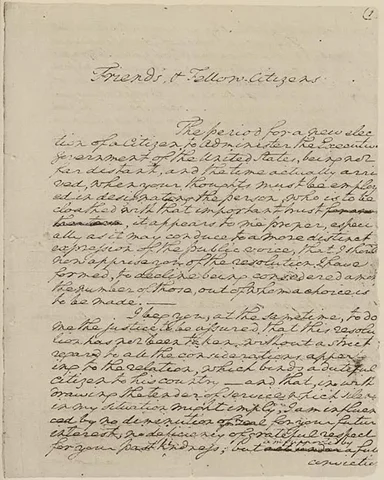 (1
Friends, & Fellow-Citizens
The period for a new elec
tion of a Citizen, to Administer the Executive
Government of the United States, being not
far distant, and the time actually arri
ved, when your thoughts must be employ
ed in designating the person, who is to be
cloathed with that important trust
it appears to me proper, especi
ally as it may conduce to a more distinct
expression of the public voice, that I should
now apprise you of the resolution I have
formed, to decline being considered among
the number of those, out of whom a choice is
to be made.—
I beg you, at the same time, to do
me the justice to be assured, that this resolu
tion has not been taken, without a strict
regard to all the considerations appertain
ing to the relation, which binds a dutiful
citizen to his country — and that, in with
drawing the tender of service which silence
in my situation might imply, I am influen
ced by no diminution of zeal for your future
interest, no deficiency of grateful respect
for your past kindness; but
am supported by
a full
conviction